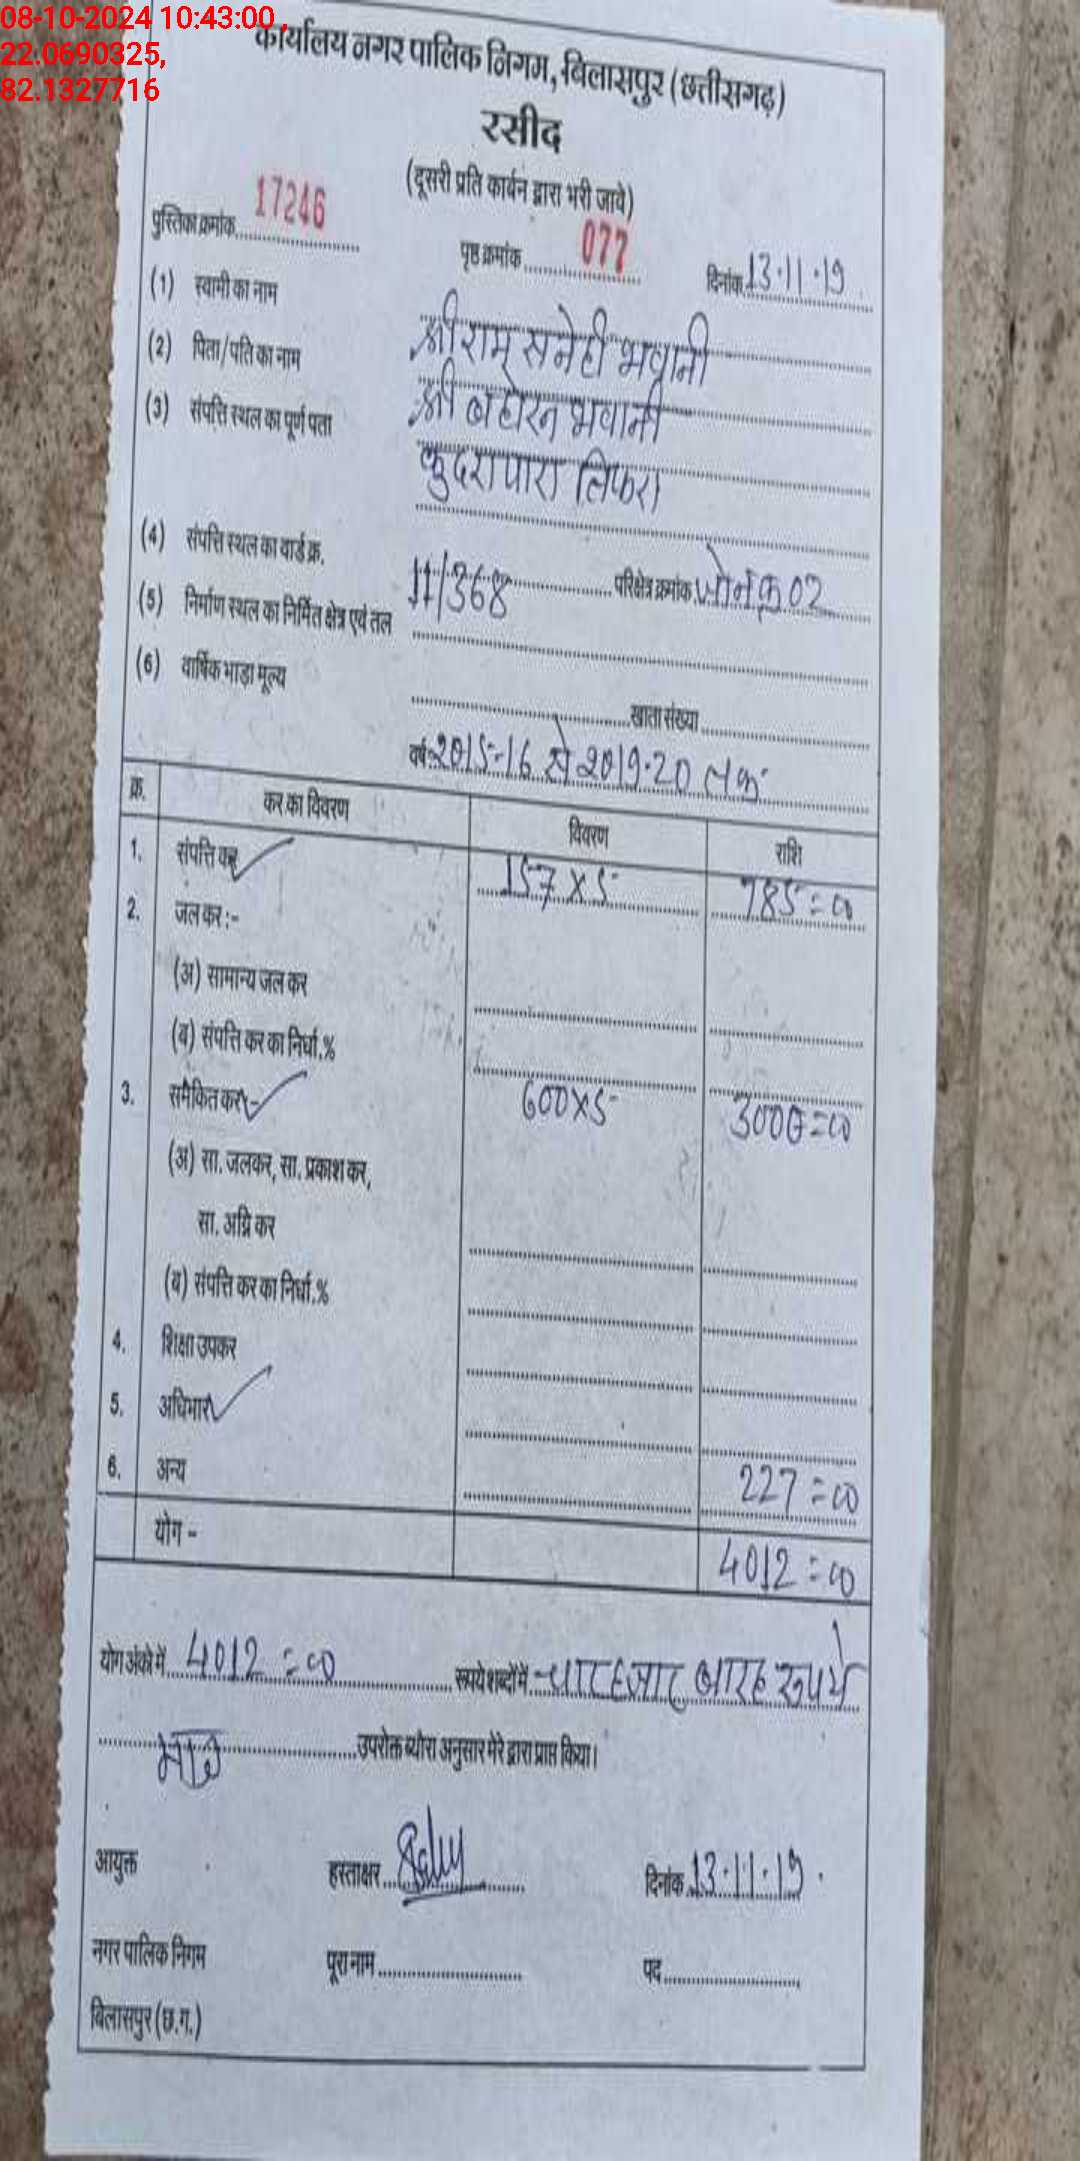 08-10-2024 10:43:00,
22.0690325,
82.1327716
कार्यालय नगर पालिक निगम, बिलासपुर (छत्तीसगढ़)
रसीद
(दूसरी प्रति कार्बन द्वारा भरी जावे)
पुस्तिका क्रमांक 17246 पृष्ठ क्रमांक 077 दिनांक 13.11.19
(1) स्वामी का नाम श्री राम सनेही भवानी
(2) पिता/पति का नाम श्री बहोरन भवानी
(3) संपत्ति स्थल का पूर्ण पता कुदरापारा तिफरा
(4) संपत्ति स्थल का वार्ड क्र. 11/368 परिक्षेत्र क्रमांक जोन क्र 02
(5) निर्माण स्थल का निर्मित क्षेत्र एवं तल
(6) वार्षिक भाड़ा मूल्य खाता संख्या
वर्ष 2015-16 से 2019-20 तक
क्र. कर का विवरण विवरण राशि
1. संपत्ति कर 157 x 5 785=00
2. जल कर :-
(अ) सामान्य जल कर
(ब) संपत्ति कर का निर्धा.%
3. समेकित कर :- 600x5 3000=00
(अ) सा. जलकर, सा. प्रकाश कर,
सा. अग्नि कर
(ब) संपत्ति कर का निर्धा.%
4. शिक्षा उपकर
5. अधिभार
6. अन्य 227=00
योग - 4012=00
योग अंको में 4012=00 रूपये शब्दों में चार हजार बारह रूपये
मात्र उपरोक्त ब्योरा अनुसार मेरे द्वारा प्राप्त किया।
आयुक्त हस्ताक्षर दिनांक 13.11.19.
नगर पालिक निगम पूरा नाम पद
बिलासपुर (छ.ग.)